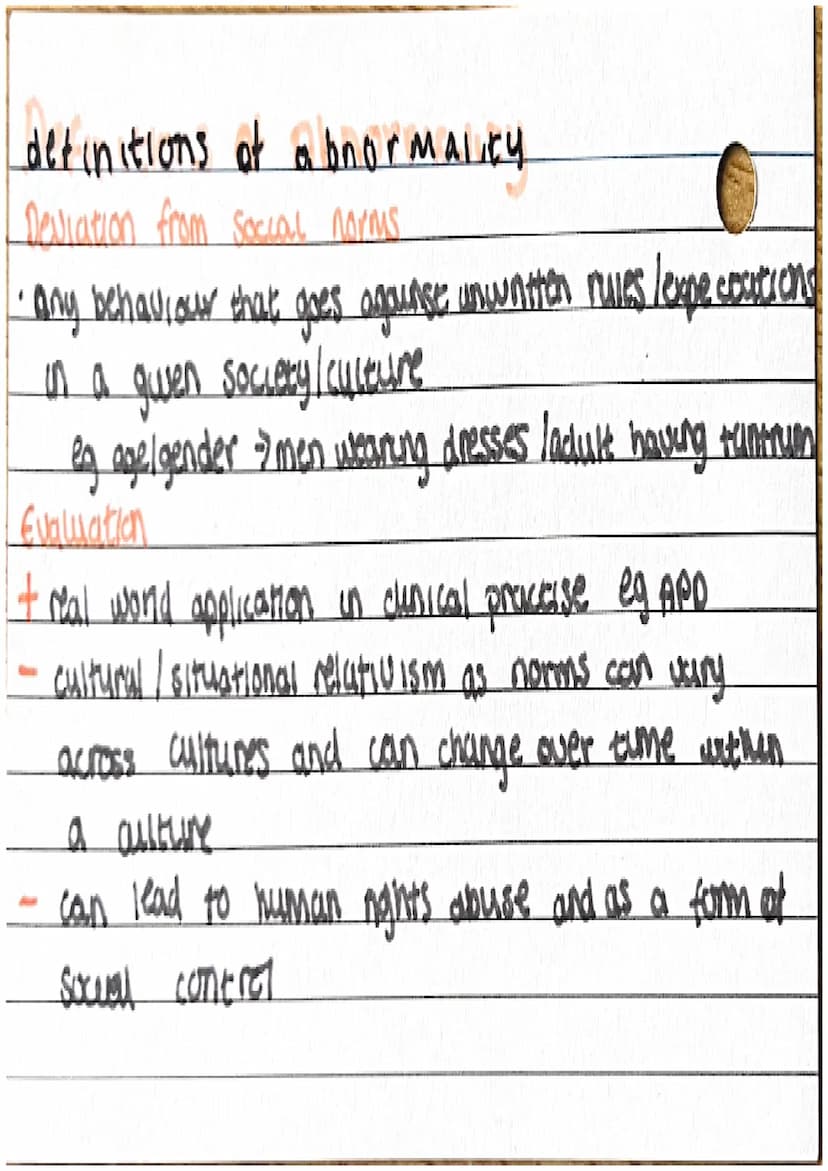 definitions of abnormality
Deviation from social norms
· Any behaviour that goes against unwritten rules/expectations
in a given society/culture
eg age/gender → men wearing dresses /adult having tantrum
Evaluation
+ real world application in clinical practise eg APD
- cultural / situational relativism as norms can vary
across cultures and can change over time within
a culture
- can lead to human rights abuse and as a form of
social control